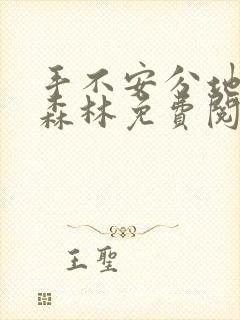 手不安分地
森林免費閱
王聖